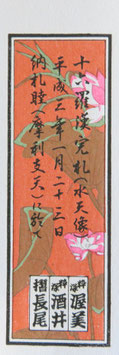 十六羅漢完札(水天宮)
平成三年一月二十三日
納札睦(摩利支天)に於て
渥美
酒井
摺長尾